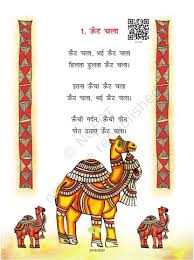 1. ऊँट चला
ऊँट चला, भई ऊँट चला
हिलता डुलता ऊँट चला।
इतना ऊँचा ऊँट चला
ऊँट चला, भई ऊँट चला।
ऊँची गर्दन, ऊँची पीठ
पीठ उठाए ऊँट चला।